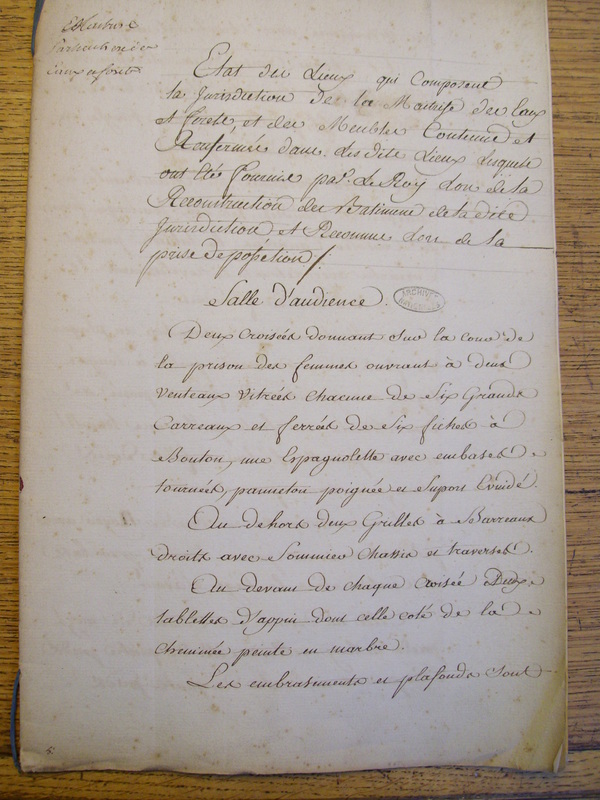 Maitrise
Particuliere des
Eaux et forets
Etat des Lieux qui composent
la Jurisdiction de la Maitrise des Eaux
et Forets, et des Meubles Contenus et
Renfermés dans desdits Lieux Lesquels
ont été fournis par Le Roy lors de la
Reconstruction des Batimens de la dite
Jurisdiction et Reconnus lors de la
prise de possétion /.
Salle d'audience.
ARCHIVES
NATIONALES
Deux Croisées donnant sur la cour de
la prison des femmes ouvrant à deux
venteaux vitrées chacune de Six Grands
Carreaux et ferrées de Six fiches à
Bouton, une Espagnolette avec embases
tournées, panneton poignée et Suport Evuidé.
Au dehors deux Grilles à Barreaux
droits avec Sommier Chassis et traverses.
Au devant de chaque Croisée Deux
tablettes d'appui dont celle coté de la
Cheminée peinte en marbre.
Les embrasments et plafonds sont